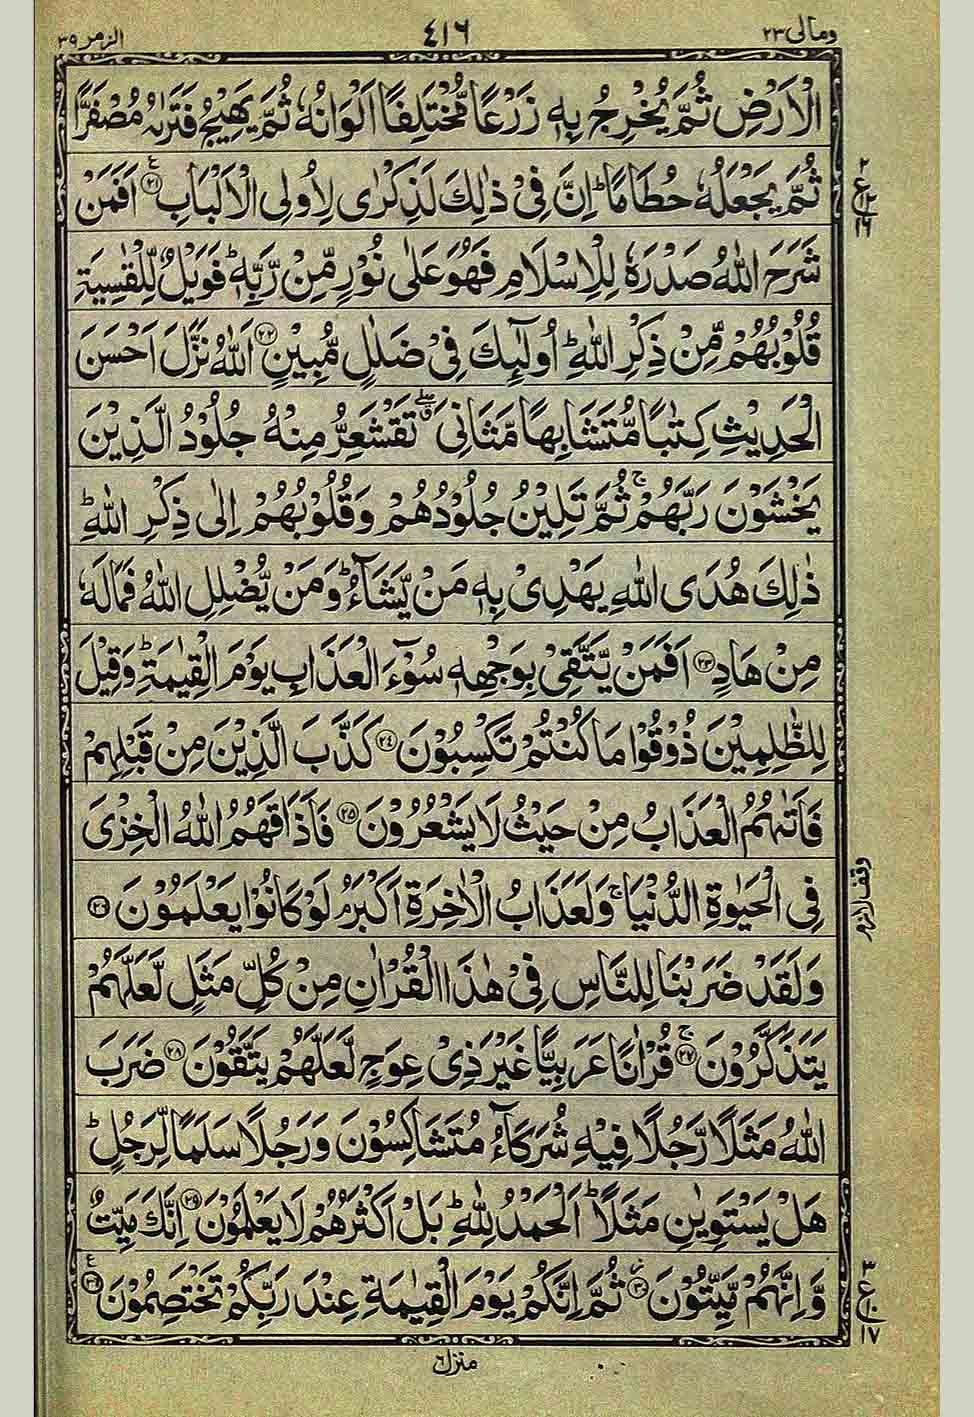 ومالی ٢٣
٤١٦
الزمر ٣٩
الْاَرْضِ ثُمَّ يُخْرِجُ بِهٖ زَرْعًا مُّخْتَلِفًا اَلْوَانُهٗ ثُمَّ يَهِيْجُ فَتَرٰىهُ مُصْفَرًّا
ثُمَّ يَجْعَلُهٗ حُطَامًا ؕ اِنَّ فِيْ ذٰلِكَ لَذِكْرٰى لِاُولِى الْاَلْبَابِ ﴿٢١﴾ اَفَمَنْ
شَرَحَ اللّٰهُ صَدْرَهٗ لِلْاِسْلَامِ فَهُوَ عَلٰى نُوْرٍ مِّنْ رَّبِّهٖ ؕ فَوَيْلٌ لِّلْقٰسِيَةِ
قُلُوْبُهُمْ مِّنْ ذِكْرِ اللّٰهِ ؕ اُولٰٓئِكَ فِيْ ضَلٰلٍ مُّبِيْنٍ ﴿٢٢﴾ اَللّٰهُ نَزَّلَ اَحْسَنَ
الْحَدِيْثِ كِتٰبًا مُّتَشَابِهًا مَّثَانِيَ ۖۗ تَقْشَعِرُّ مِنْهُ جُلُوْدُ الَّذِيْنَ
يَخْشَوْنَ رَبَّهُمْ ۚ ثُمَّ تَلِيْنُ جُلُوْدُهُمْ وَقُلُوْبُهُمْ اِلٰى ذِكْرِ اللّٰهِ ؕ
ذٰلِكَ هُدَى اللّٰهِ يَهْدِيْ بِهٖ مَنْ يَّشَآءُ ؕ وَمَنْ يُّضْلِلِ اللّٰهُ فَمَا لَهٗ
مِنْ هَادٍ ﴿٢٣﴾ اَفَمَنْ يَّتَّقِيْ بِوَجْهِهٖ سُوْٓءَ الْعَذَابِ يَوْمَ الْقِيٰمَةِ ؕ وَقِيْلَ
لِلظّٰلِمِيْنَ ذُوْقُوْا مَا كُنْتُمْ تَكْسِبُوْنَ ﴿٢٤﴾ كَذَّبَ الَّذِيْنَ مِنْ قَبْلِهِمْ
فَاَتٰىهُمُ الْعَذَابُ مِنْ حَيْثُ لَا يَشْعُرُوْنَ ﴿٢٥﴾ فَاَذَاقَهُمُ اللّٰهُ الْخِزْيَ
فِي الْحَيٰوةِ الدُّنْيَا ۚ وَلَعَذَابُ الْاٰخِرَةِ اَكْبَرُ ۘ لَوْ كَانُوْا يَعْلَمُوْنَ ﴿٢٦﴾
وَلَقَدْ ضَرَبْنَا لِلنَّاسِ فِيْ هٰذَا الْقُرْاٰنِ مِنْ كُلِّ مَثَلٍ لَّعَلَّهُمْ
يَتَذَكَّرُوْنَ ۚ﴿٢٧﴾ قُرْاٰنًا عَرَبِيًّا غَيْرَ ذِيْ عِوَجٍ لَّعَلَّهُمْ يَتَّقُوْنَ ﴿٢٨﴾ ضَرَبَ
اللّٰهُ مَثَلًا رَّجُلًا فِيْهِ شُرَكَآءُ مُتَشَاكِسُوْنَ وَرَجُلًا سَلَمًا لِّرَجُلٍ ؕ
هَلْ يَسْتَوِيٰنِ مَثَلًا ؕ اَلْحَمْدُ لِلّٰهِ ؕ بَلْ اَكْثَرُهُمْ لَا يَعْلَمُوْنَ ﴿٢٩﴾ اِنَّكَ مَيِّتٌ
وَّاِنَّهُمْ مَّيِّتُوْنَ ﴿٣٠﴾ ثُمَّ اِنَّكُمْ يَوْمَ الْقِيٰمَةِ عِنْدَ رَبِّكُمْ تَخْتَصِمُوْنَ ﴿٣١﴾
٢
ع
١٢
١٦
وقف لازم
٣
ع
١٠
١٧
منزل ٦